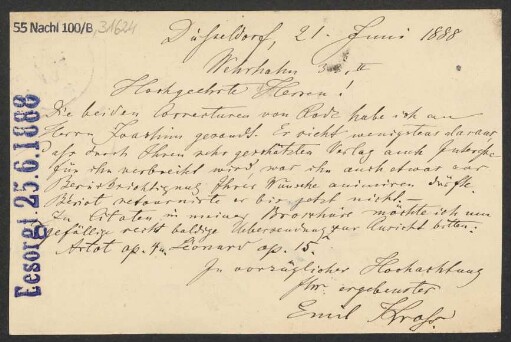 55 Nachl 100/B, 31624
Düsseldorf, 21. Juni 1888
Wehrhahn II
Hochgeehrte Herren!
Die beiden Correcturen von Rode habe ich an
Herrn Joachim gesandt. Er sieht wenigstens daraus,
daß durch Ihren sehr geschätzten Verlag auch
für ihn verbreitet wird, was ihn auch etwas zur
Berücksichtigung Ihres Wunsches animiren dürfte.
Bériot retournirte er bis jetzt nicht.—
Zu Citaten in meiner Broschüre möchte ich um
gefällige recht baldige Uebersendung zur Ansicht bitten:
Artot op. 4 u. Léonard op. 15.
In vorzüglicher Hochachtung
Ihr ergebenster
Emil Kross.
Besorgt 25.6.1888